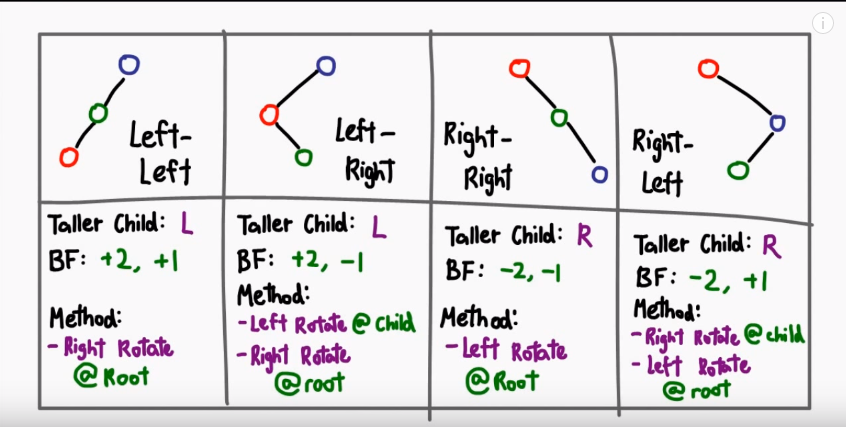 Left-
Left
Left-
Right
Right-
Right
Right-
Left
Taller Child: L
BF: +2, +1
Method:
- Right Rotate
@ Root
Taller Child: L
BF: +2, -1
Method:
- Left Rotate @ Child
- Right Rotate
@ root
Taller Child: R
BF: -2, -1
Method:
- Left Rotate
@ Root
Taller Child: R
BF: -2, +1
Method:
- Right Rotate @ child
- Left Rotate
@ root